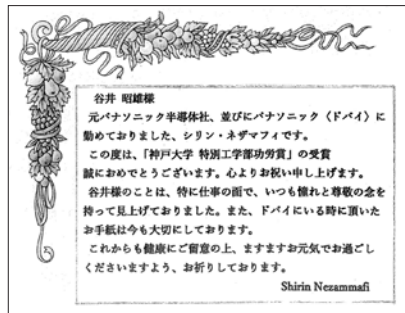 谷井 昭雄様
元パナソニック半導体社、並びにパナソニック〈ドバイ〉に
勤めておりました、シリン・ネザマフィです。
この度は、「神戸大学 特別工学部功労賞」の受賞
誠におめでとうございます。心よりお祝い申し上げます。
谷井様のことは、特に仕事の面で、いつも憧れと尊敬の念を
持って見上げておりました。また、ドバイにいる時に頂いた
お手紙は今も大切にしております。
これからも健康にご留意の上、ますますお元気でお過ごし
くださいますよう、お祈りしております。
Shirin Nezammafi